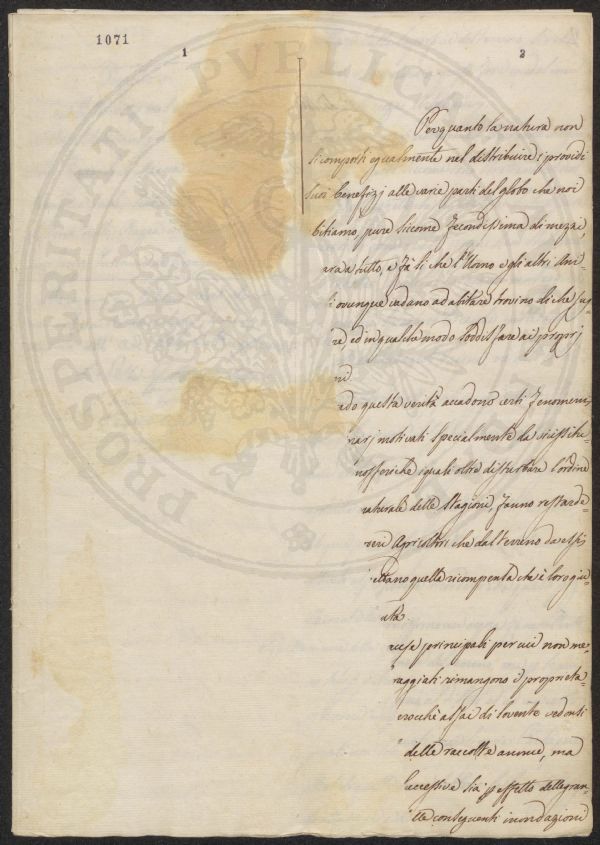 1071
1
2
PROSPERITATI PVBLICAE
Per quanto la natura non
si comporti egualmente nel distribuire i provvidi
suoi benefizj alle varie parti del globo che noi
bitiamo, pure sicome fecondissima di mezzi,
ara a tutto, e fà si che l'Uomo e gli altri Ani-
i ovunque vadano ad abitare trovino di che sug-
re ed in qualche modo soddisfare ai proprj
ni.
ado questa verità accadono certi fenomeni
narj motivati specialmente da vicissitu-
nosferiche i quali oltre disturbare l'ordine
naturale delle Stagioni, fanno restar de-
veri Agricoltori che dal terreno da essi
ettano quella ricompensa che è loro giu-
uta.
ause principali per cui non me-
raggiati rimangono i proprieta-
erocchè assai di sovente vedonsi
delle raccolte annue, ma
successiva sia p effetto delle gran-
lle conseguenti inondazioni